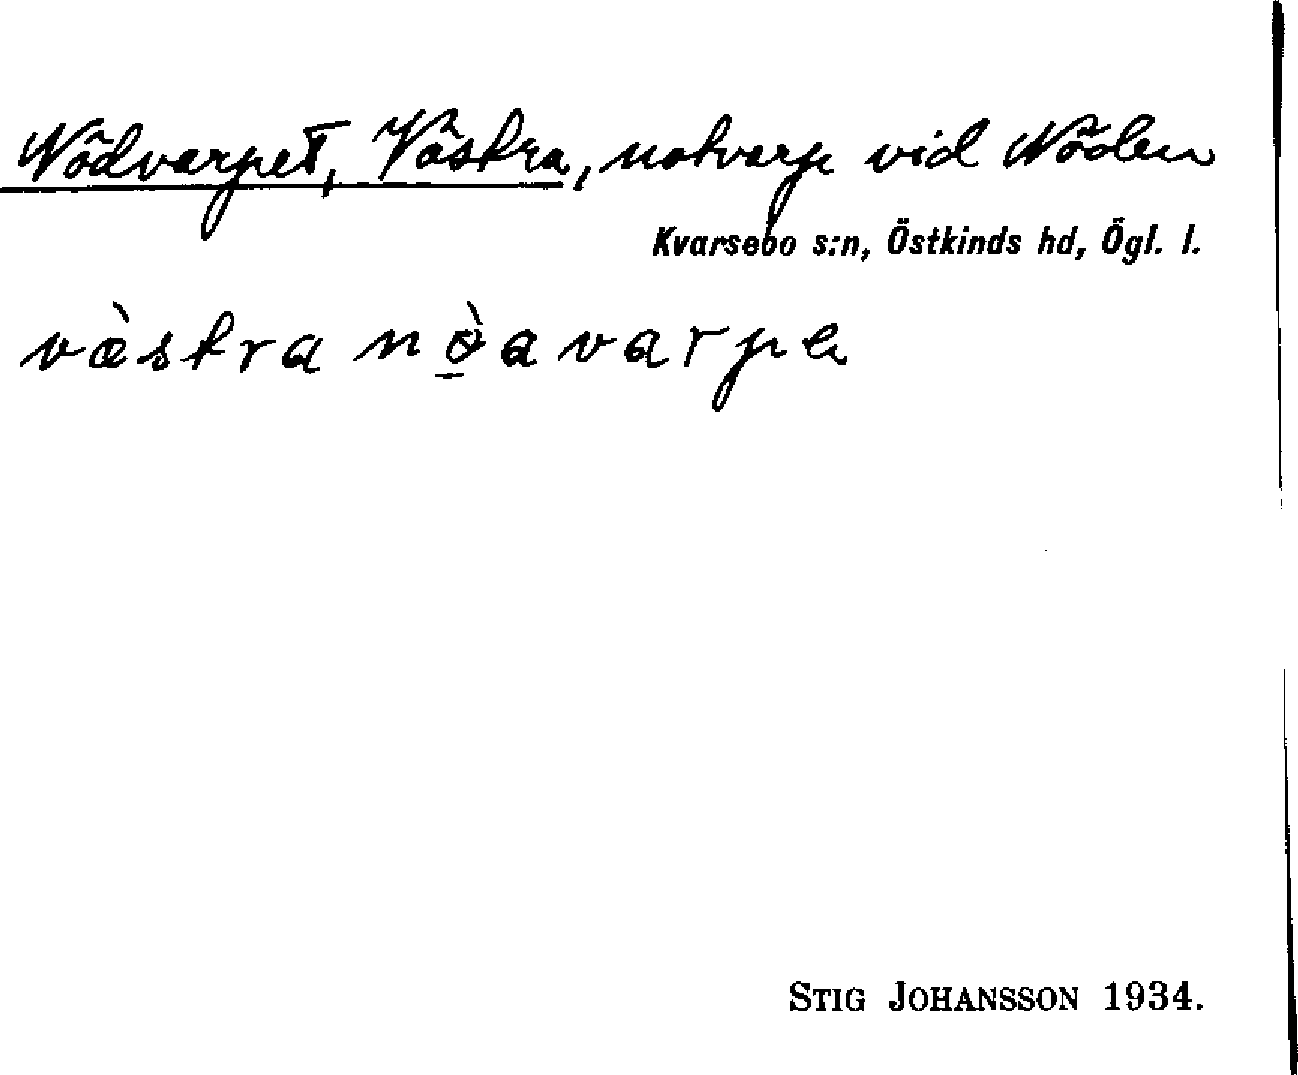 Nödvarpet, Västra, notvarp vid Nöden
Kvarsebo s:n, Östkinds hd, Ögl. l.
væ̀stra nø̠̀avarpe
STIG JOHANSSON 1934.